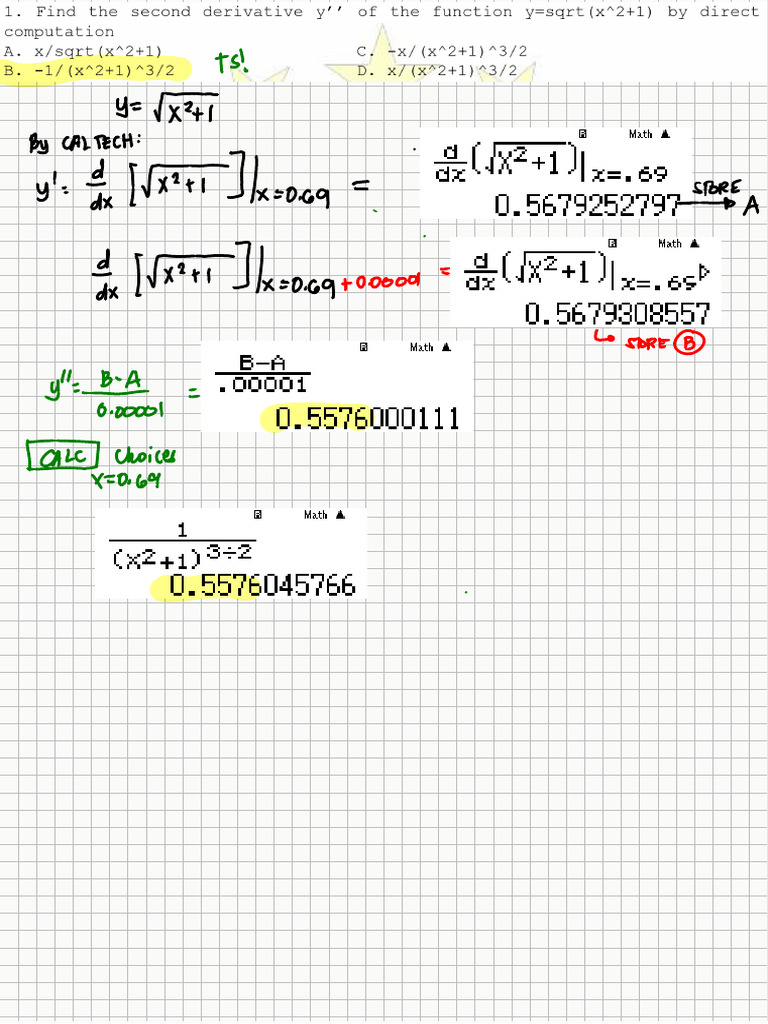 1. Find the second derivative y’’ of the function y=sqrt(x^2+1) by direct
computation
A. x/sqrt(x^2+1) C. -x/(x^2+1)^3/2
B. -1/(x^2+1)^3/2 D. x/(x^2+1)^3/2
TS!
y= √x²+1
By CALTECH:
y': d/dx [√x²+1]|x=0.69 =
Math ▲
d/dx(√x²+1)|x=.69
0.5679252797 STORE → A
d/dx [√x²+1]|x=0.69+0.00001 =
Math ▲
d/dx(√x²+1)|x=.69▷
0.5679308557
↳ STORE B
y''= B-A/0.00001 =
Math ▲
B-A/.00001
0.5576000111
CALC choices
x=0.69
Math ▲
1/(x²+1)^3÷2
0.5576045766